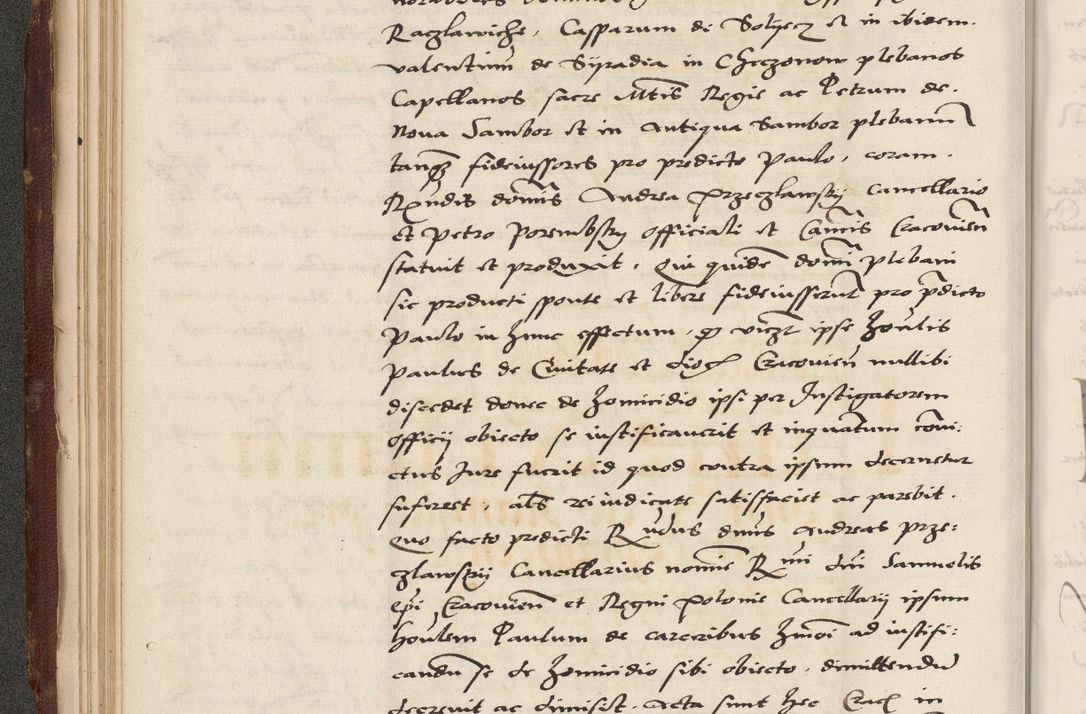 Raczlawiche, Casparum de Solyecz et in ibidem
valentinū de Syradia in Checzonow plebanos
Capellanos sacre Mtis Regie ac Petrum de
Nova Sambor et in Antiqua Sambor plebanū
tanqȝ fideiussores pro predicto Paulo, coram
Rn̄dis dom̄is Andrea Przeczlawsky Cancellario
et Petro Porembsky officiali et Can̄cis Cracovien̄
statuit et produxit, Qui quidē domī plebani
sic producti sponte et libere fideiusserūt pro p̄dicto
Paulo in hunc effectum, qȝ viczt ipse Hon̄lis
Paulus de Civitate et dioc̄ Cracovien̄ nullibi
discedet donec de homicidio ipsi per Instigatorem
officij obiecto se iustificaverit et inquātum cōvi:
ctus Jure fuerit id quod contra ipsum decernetur
sufferet, als rei iudicate satisfaciet ac parebit.
Quo facto predicti Rn̄dus dn̄us Andreas Prze:
czlawskij Cancellarius nomīe Rmi dn̄i Samuelis
ep̄i Cracovien̄ et Regni Polonie Cancellarij ipsum
Hon̄lem Paulum de carceribus hmōi ad iustifi:
candū se de homicidio sibi obiecto, dimittendū
decrevit ac dimisit. Acta sunt hec Crac̄ in